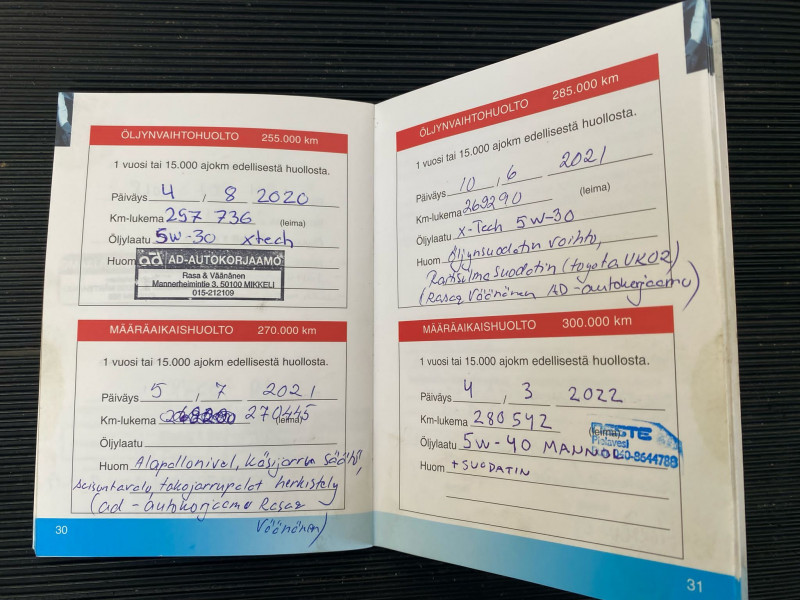 ÖLJYNVAIHTOHUOLTO 255.000 km
1 vuosi tai 15.000 ajokm edellisestä huollosta.
Päiväys 4 , 8 2020
Km-lukema 257 736 (leima)
Öljylaatu 5w-30 xtech
Huom
ad AD-AUTOKORJAAMO
Rasa & Väänänen
Mannerheimintie 3, 50100 MIKKELI
015-212109
MÄÄRÄAIKAISHUOLTO 270.000 km
1 vuosi tai 15.000 ajokm edellisestä huollosta.
Päiväys 5 , 7 2021
Km-lukema 270445 (leima)
Öljylaatu
Huom Alapallonivel, käsijarrun säätö,
takajarrupalat herkistely
(ad-autokorjaamo Rasa &
Väänänen)
30
ÖLJYNVAIHTOHUOLTO 285.000 km
1 vuosi tai 15.000 ajokm edellisestä huollosta.
Päiväys 10 , 6 2021
Km-lukema 269290 (leima)
Öljylaatu x-Tech 5w-30
Huom Öljynsuodatin vaihto,
Raitisilmasuodatin (toyota VK02)
(Rasa & Väänänen AD-autokorjaamo)
MÄÄRÄAIKAISHUOLTO 300.000 km
1 vuosi tai 15.000 ajokm edellisestä huollosta.
Päiväys 4 , 3 2022
Km-lukema 280542 (leima)
Öljylaatu 5W-40 MANNOL
Pielavesi
Huom + SUODATIN
31